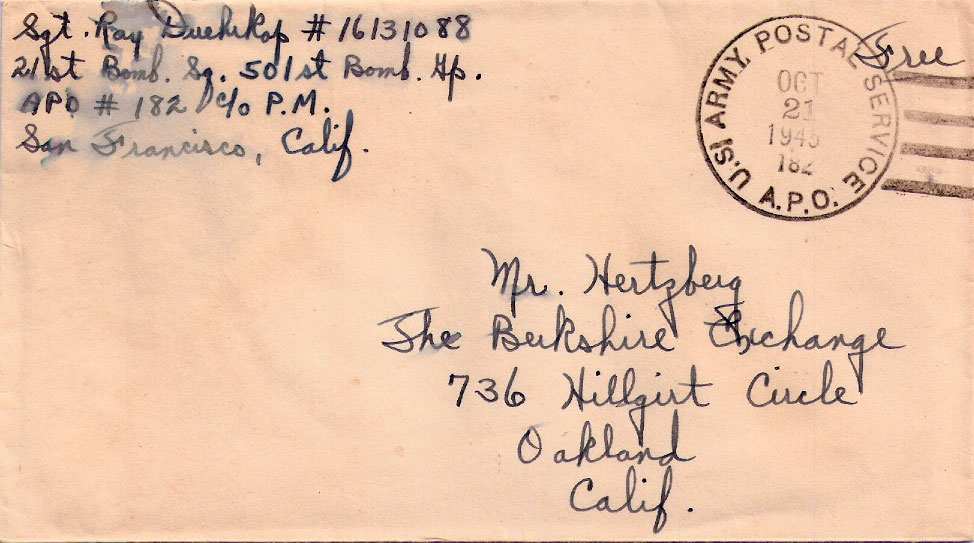 Sgt. Ray Duehrkop # 16131088
21st Bomb. Sq. 501st Bomb. Gp.
APO # 182 c/o P.M.
San Francisco, Calif.
Free
U.S. ARMY POSTAL SERVICE
OCT
21
1945
182
A.P.O.
Mr. Hertzberg
The Berkshire Exchange
736 Hillgirt Circle
Oakland
Calif.